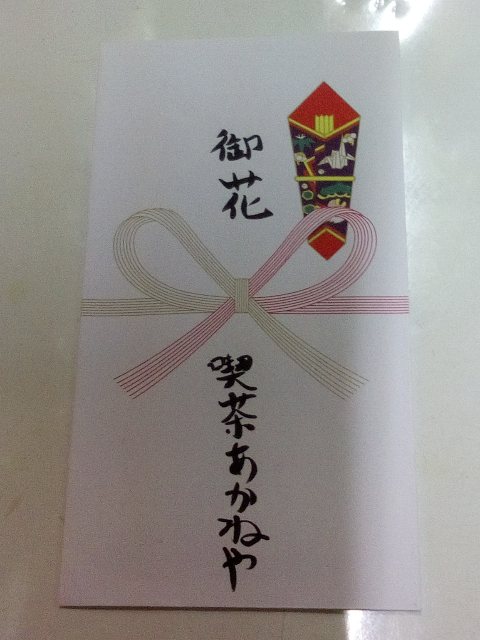 御花
喫茶あかねや